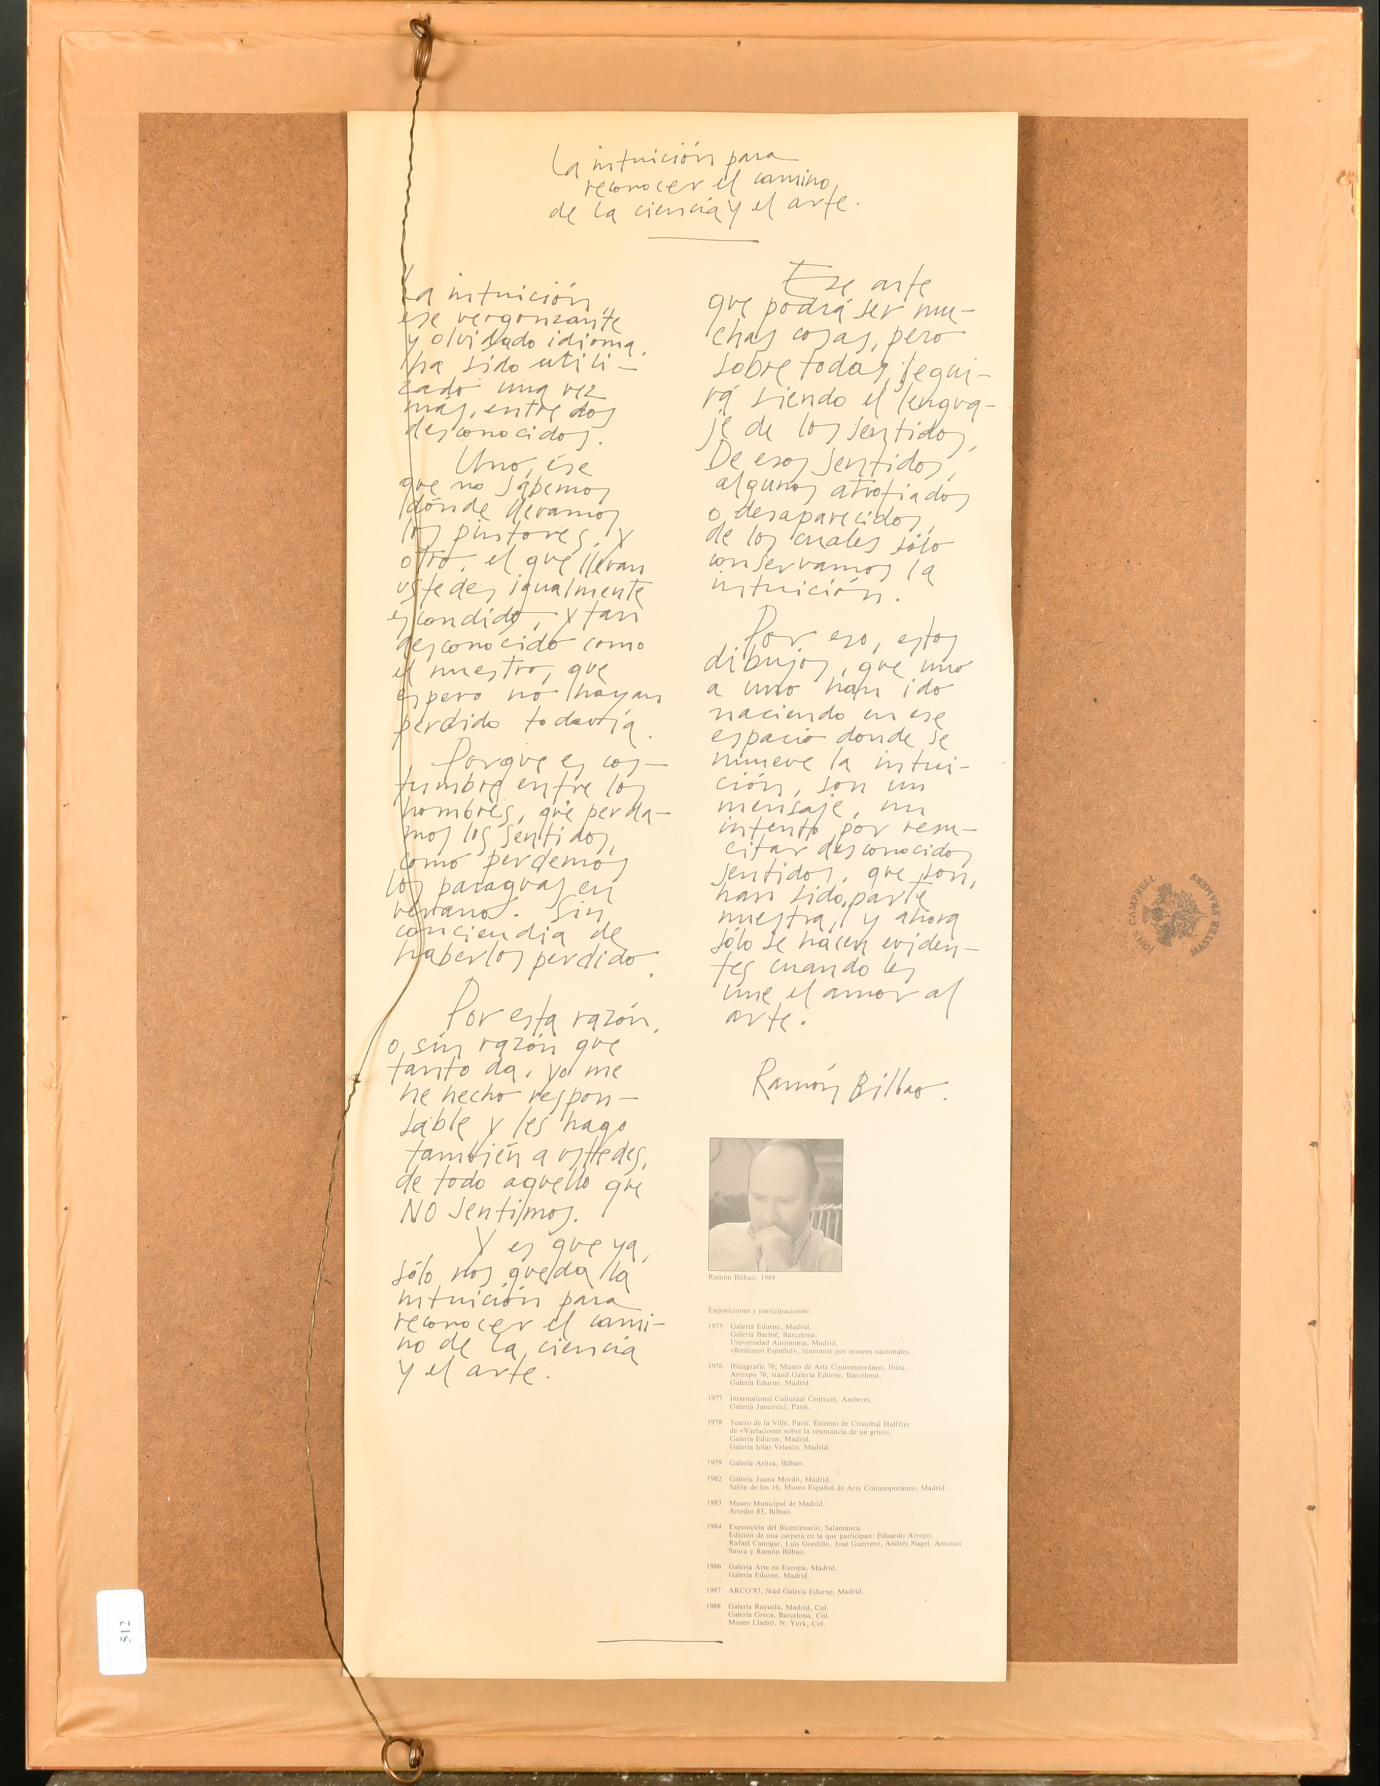 La intuición para
reconocer el camino
de la ciencia y el arte.
La intuición
ese vergonzante
y olvidado idioma,
ha sido utili-
zado una vez
más, entre dos
desconocidos.
Uno, ése
que no sabemos
dónde llevamos
los pintores, y
otro, el que llevan
ustedes igualmente
escondido, y tan
desconocido como
el nuestro, que
espero no hayan
perdido todavía.
Porque es cos-
tumbre entre los
hombres, que perda-
mos los sentidos,
como perdemos
los paraguas en
verano. Sin
conciencia de
haberlos perdido.
Por esta razón,
o sin razón que
tanto da, yo me
he hecho respon-
sable y les hago
también a ustedes,
de todo aquello que
NO sentimos.
Y es que ya,
sólo nos queda la
intuición para
reconocer el cami-
no de la ciencia
y el arte.
Ese arte
que podrá ser mu-
chas cosas, pero
sobre todas, segui-
rá siendo el lengua-
je de los sentidos,
De esos sentidos,
algunos atrofiados
o desaparecidos,
de los cuales sólo
conservamos la
intuición.
Por eso, estos
dibujos, que uno
a uno han ido
naciendo en ese
espacio donde se
mueve la intui-
ción, son un
mensaje, un
intento por resu-
citar desconocidos
sentidos, que son,
han sido, parte
nuestra, y ahora
sólo se hacen eviden-
tes cuando les
une el amor al
arte.
Ramón Bilbao.
Ramón Bilbao, 1988
Exposiciones y participaciones:
1975 Galería Edurne, Madrid.
Galería Barbié, Barcelona.
Universidad Autónoma, Madrid.
«Realismo Español», itinerante por museos nacionales.
1976 Ibizagrafic 76, Museo de Arte Contemporáneo, Ibiza.
Artexpo 76, stand Galería Edurne, Barcelona.
Galería Edurne, Madrid.
1977 International Culturaal Centrum, Amberes.
Galería Jancovici, París.
1978 Teatro de la Ville, París. Estreno de Cristobal Halffter
de «Variaciones sobre la resonancia de un grito».
Galería Edurne, Madrid.
Galería Iolas Velasco, Madrid.
1979 Galería Aritza, Bilbao.
1982 Galería Juana Mordó, Madrid.
Salón de los 16, Museo Español de Arte Contemporáneo, Madrid.
1983 Museo Municipal de Madrid.
Arteder 83, Bilbao.
1984 Exposición del Bicentenario, Salamanca.
Edición de una carpeta en la que participan: Eduardo Arroyo,
Rafael Canogar, Luis Gordillo, José Guerrero, Andrés Nagel, Antonio
Saura y Ramón Bilbao.
1986 Galería Arte en Europa, Madrid.
Galería Edurne, Madrid.
1987 ARCO'87, Stad Galería Edurne, Madrid.
1988 Galería Rayuela, Madrid, Col.
Galería Greca, Barcelona, Col.
Museo Lladró, N. York, Col.
JOHN CAMPBELL
MASTER FRAMERS
512